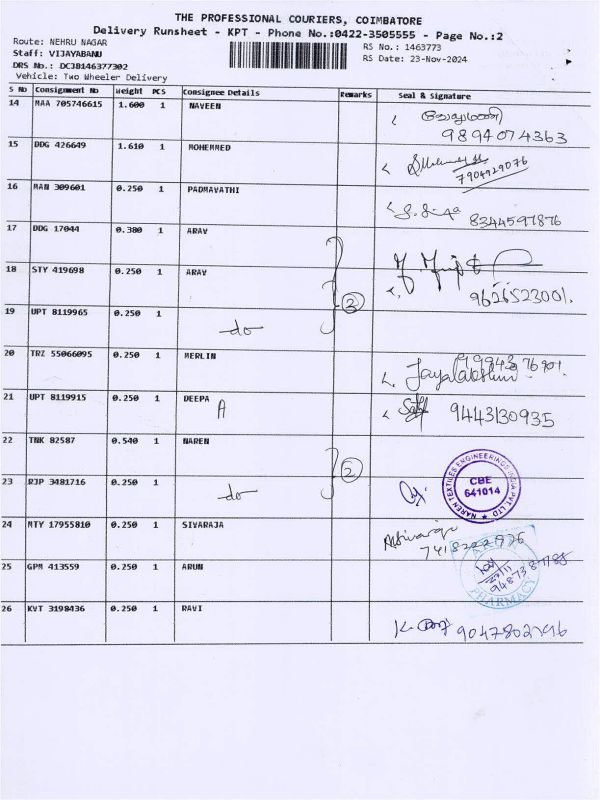 THE PROFESSIONAL COURIERS, COIMBATORE
Delivery Runsheet - KPT - Phone No.:0422-3505555 - Page No.:2
Route: NEHRU NAGAR
RS No.: 1463773
Staff: VIJAYABANU
RS Date: 23-Nov-2024
DRS No.: DCJB146377302
Vehicle: Two Wheeler Delivery
S No Consignment No Weight PCS Consignee Details Remarks Seal & signature
14 MAA 705746615 1.600 1 NAVEEN
9894074363
15 DDG 426649 1.610 1 MOHEMMED
7904929076
16 MAN 309601 0.250 1 PADMAVATHI
8344597876
17 DDG 17044 0.380 1 ARAV
18 STY 419698 0.250 1 ARAV
2 9626523001.
19 UPT 8119965 0.250 1
do
20 TRZ 55066095 0.250 1 MERLIN
Jayalakshmi
21 UPT 8119915 0.250 1 DEEPA
A 9443130935
22 TNK 82587 0.540 1 NAREN
2
23 RJP 3481716 0.250 1
do
NAREN TEXTILES ENGINEERINGS INDIA PVT LTD
CBE
641014
24 MTY 17955810 0.250 1 SIVARAJA
7418222976
25 GPM 413559 0.250 1 ARUN
PHARMACY
26 KVT 3198436 0.250 1 RAVI
9047802796